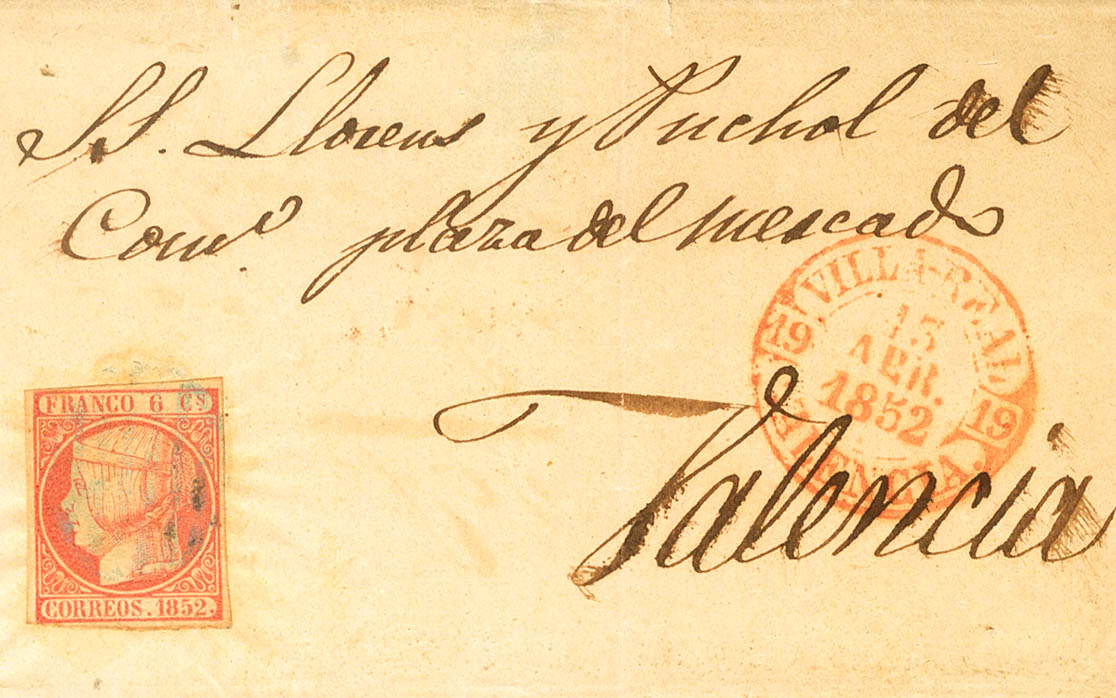 SS. Llorens y Puchol del
Comº. plaza del mercado
Valencia
VILLA-REAL
19 19
13
ABR.
1852
VALENCIA.
FRANCO 6 Cs
CORREOS. 1852.